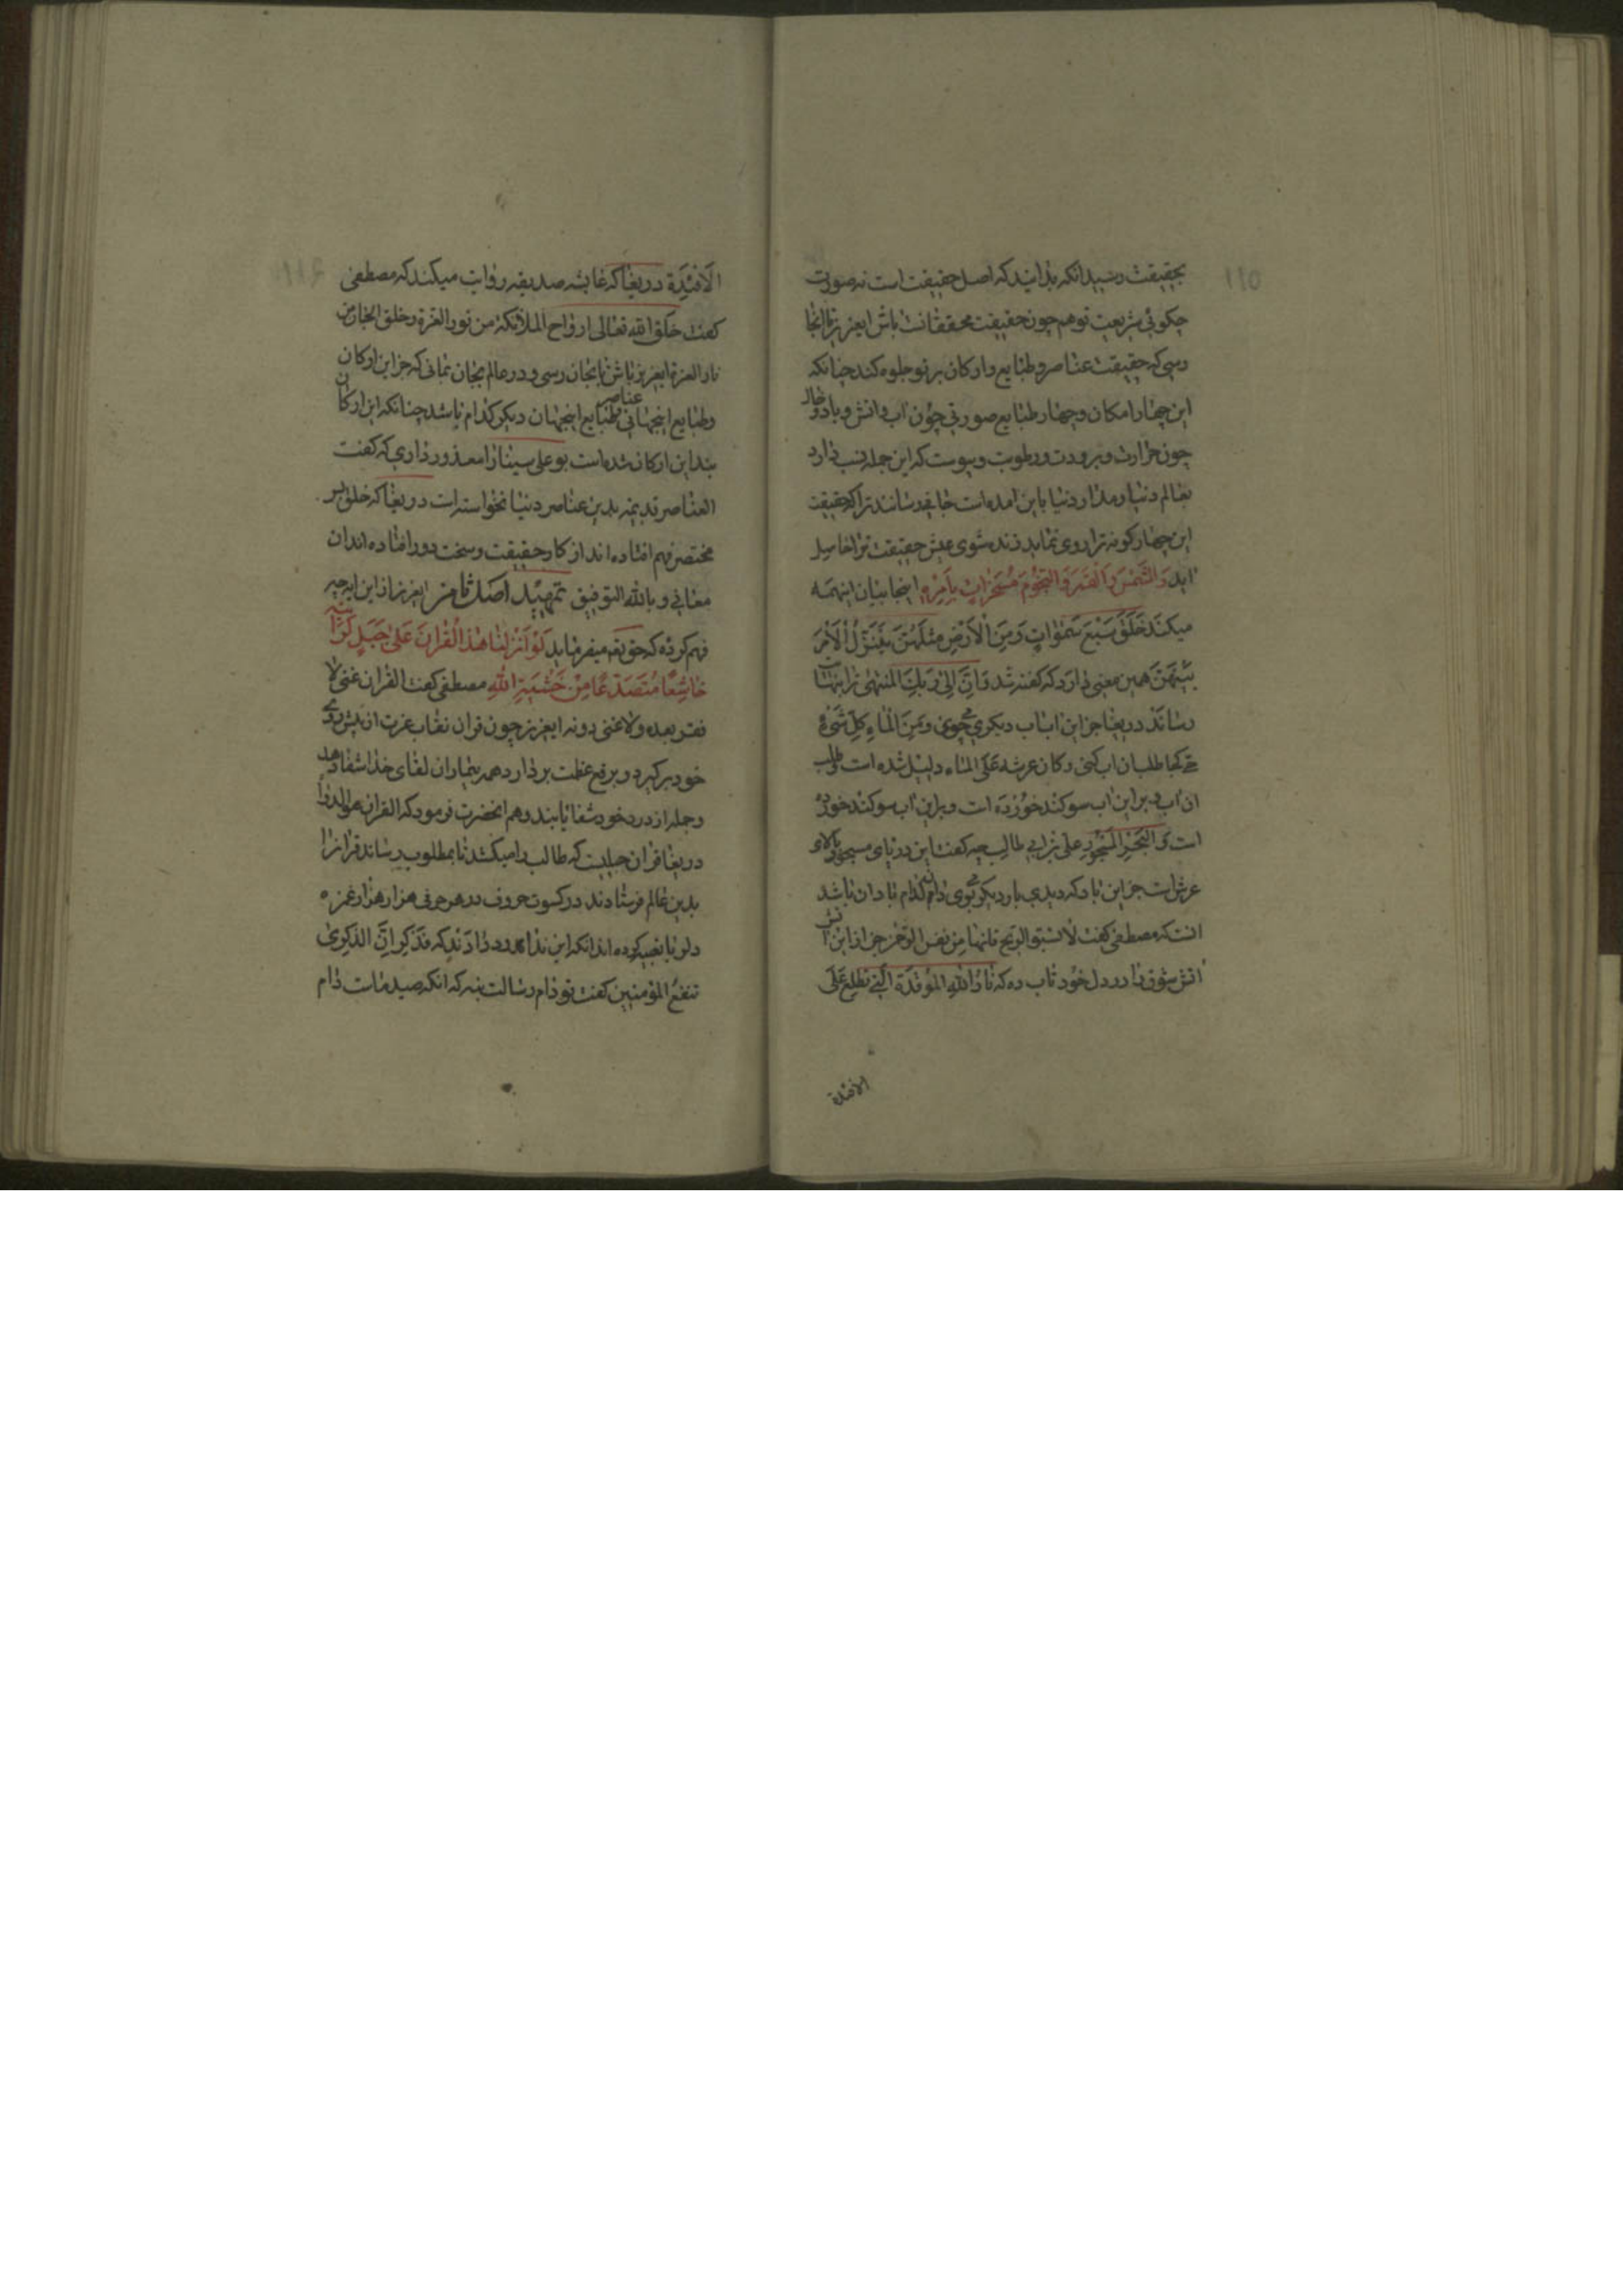 بحقیقت رسید انکه بدانید که اصل حقیقت است نه صورت
چکوئی شریعت توهم چون حقیقت محققانت باش ایعزیز تا انجا
رسی که حقیقت عناصر و طبایع و ارکان بر تو جلوه کند چنانکه
این چهار امکان و چهار طبایع صورتی چون اب واتش و باد و خاک
چون حرارت و برودت و رطوبت و یبوست که این جمله نسب دارد
بعالم دنیا و مدار دنیا باین امده است جایی رسانند ترا که حقیقت
این چهار کونه ترا روی نماید زنده شوی عیش حقیقت ترا حاصل
اید وَالشَّمْسَ وَالْقَمَرَ وَالنُّجُومَ مُسَخَّرَاتٍ بِاَمْرِهِ اینجا بیان اینهمه
میکند خَلَقَ سَبْعَ سَمٰوَاتٍ وَمِنَ الْاَرْضِ مِثْلَهُنَّ یَتَنَزَّلُ الْاَمْرُ
بَیْنَهُنَّ همین معنی دارد که کفته شد وَاَنَّ اِلیٰ رَبِّكَ الْمُنْتَهیٰ ترا بنهایت
رساند دریغا جز این اسباب دیکری می جوی ومِنَ الْمَاءِ كلّ شَیْءٍ
حی کجا طلب ان اب کنی و کان عرشه عَلَی الماء دلیل شده است وطلب
ان اب و برین اب سوکند خورده است و براین اب سوکند خورده
است وَالْبَحْرِ الْمَسْجُورِ علی بن ابی طالب چه کفت این دریای مسجور بالای
عرش است جز این باد که دیدی باد دیکر می بوی دانم کدام باد ان باشد
انست که مصطفی کفت لاتسبّوا الریح فانها مِن نفس الرحمن جز از این اتش
اتش شوق را در دل خود تاب ده که نارُ اللهِ الْمُوقَدَةُ الَّتی تَطَّلِعُ عَلَی
الافئدة
الْاَفْئِدَةِ دریغا که عایشه صدیقه روایت میکند که مصطفی
کفت خَلَقَ الله تعالی ارواح الملائکة من نور العزة وخلق الجان من
نار العزة ایعزیز باش تا بجان رسی و در عالم بجان بمانی که جز این ارکان
وطبایع اینجهانی عناصر طبایع اینجهان دیکر کدام باشد چنانکه این ارکان
بند این ارکان شده است بوعلی سینا را معذور داری که کفت
العناصر قدیمة بدین عناصر دنیا نخواسته است دریغا که خلق بس
مختصر فهم افتاده اند از کار حقیقت و سخت دور افتاده اند ان
معانی و بالله التوفیق تمهید اصل ثامن ایعزیز از این ایه چه
فهم کرده که حق تعه میفرماید لَوْ اَنْزَلْنَا هٰذَا الْقُرْاٰنَ عَلیٰ جَبَلٍ لَرَاَیْتَهُ
خَاشِعًا مُتَصَدِّعًا مِنْ خَشْیَةِ اللهِ مصطفی کفت القران غنی لا
فقر بعده ولا غنی دونه ایعزیز چون قران نقاب عزت از پیش روی
خود برکیرد و برقع عظمت بردارد همه بیماران لقای خدا شفا دهد
وجمله از درد خود شفا یابند و هم انحضرت فرمود که القران هو الدوا
دریغا قران حبلیست که طالب را میکشد تا بمطلوب رساند قرانرا
بدین عالم فرستادند در کسوت حروف در هر حرفی هزار هزار غمزه
دلربا تعبیه کرده اند انکه این ندا در دادند که فَذَکِّرْ اِنَّ الذِّکریٰ
تنفعُ المؤمنین کفت تو دام رسالت بنه که انکه صید ماست دام